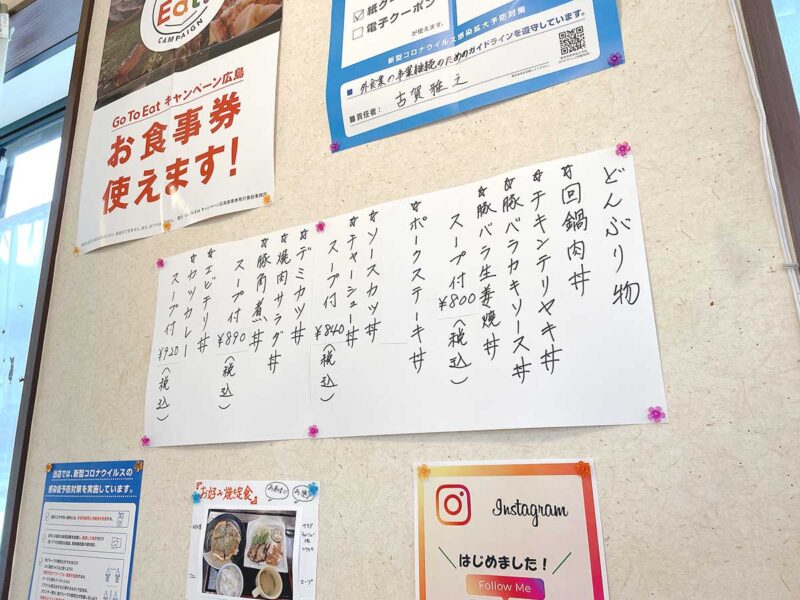 Eat!
CAMPAIGN
Go To Eat キャンペーン広島
お食事券
使えます!
電子クーポン
が使えます。
新型コロナウイルス感染拡大予防対策
外食業の事業継続のためのガイドラインを遵守しています。
職責任者:
古賀雅之
どんぶり物
☆回鍋肉丼
☆チキンテリヤキ丼
☆豚バラカキソース丼
☆豚バラ生姜焼丼
スープ付 ¥800(税込)
☆ポークステーキ丼
☆ソースカツ丼
☆チャーシュー丼
スープ付 ¥840(税込)
☆デミカツ丼
☆焼肉サラダ丼
☆豚角煮丼
スープ付 ¥890(税込)
☆エビチリ丼
☆カツカレー
スープ付 ¥920(税込)
当店では、新型コロナウイルスの
感染症予防対策を実施しています。
『お好み焼定食』
サラダ
スープ
Instagram
はじめました!
Follow Me